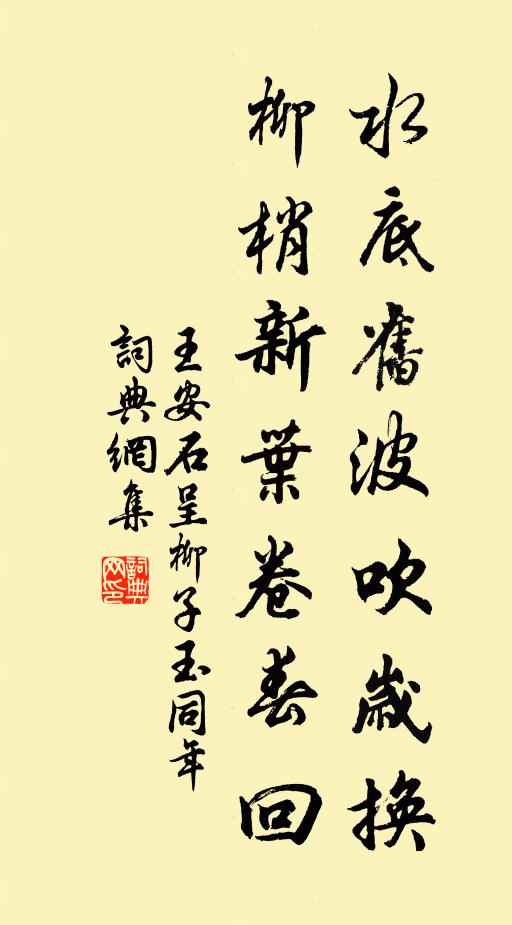 水底舊波吹歲換
柳梢新葉卷春回
王安石呈柳子玉同年
詞典網集
詞典網印